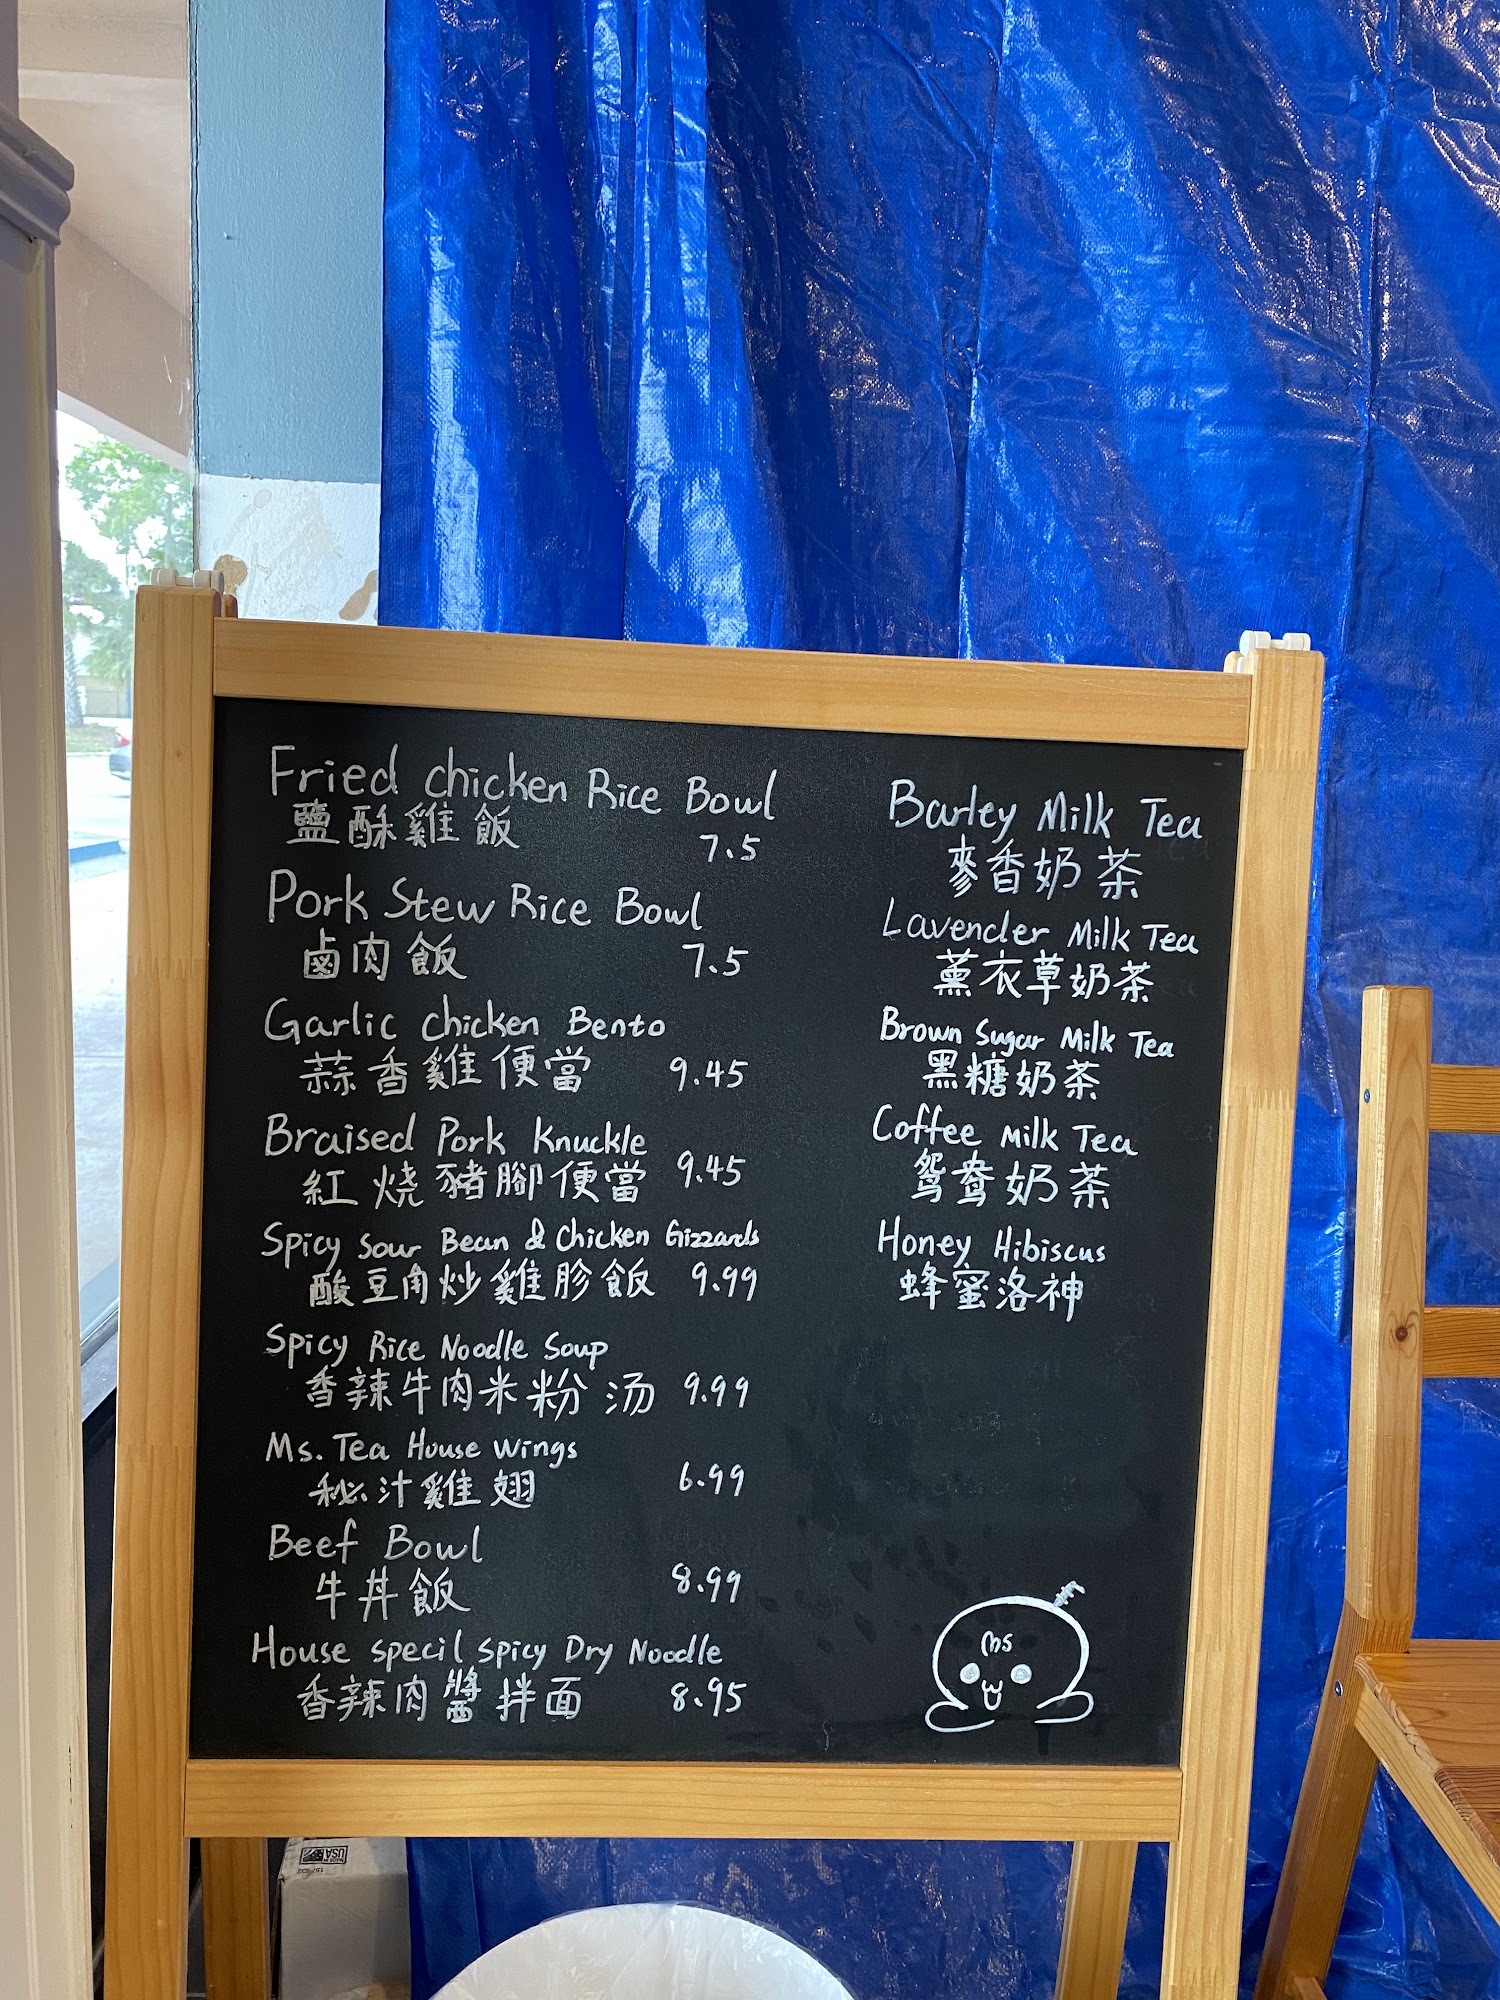 Fried chicken Rice Bowl
鹽酥雞飯 7.5
Pork Stew Rice Bowl
鹵肉飯 7.5
Garlic chicken Bento
蒜香雞便當 9.45
Braised Pork Knuckle
紅燒豬腳便當 9.45
Spicy Sour Bean & Chicken Gizzards
酸豆角炒雞胗飯 9.99
Spicy Rice Noodle Soup
香辣牛肉米粉汤 9.99
Ms. Tea House Wings
秘汁雞翅 6.99
Beef Bowl
牛丼飯 8.99
House specil Spicy Dry Noodle
香辣肉醬拌面 8.95
Barley Milk Tea
麥香奶茶
Lavender Milk Tea
薰衣草奶茶
Brown Sugar Milk Tea
黑糖奶茶
Coffee Milk Tea
鴛鴦奶茶
Honey Hibiscus
蜂蜜洛神
ms
MADE IN
USA